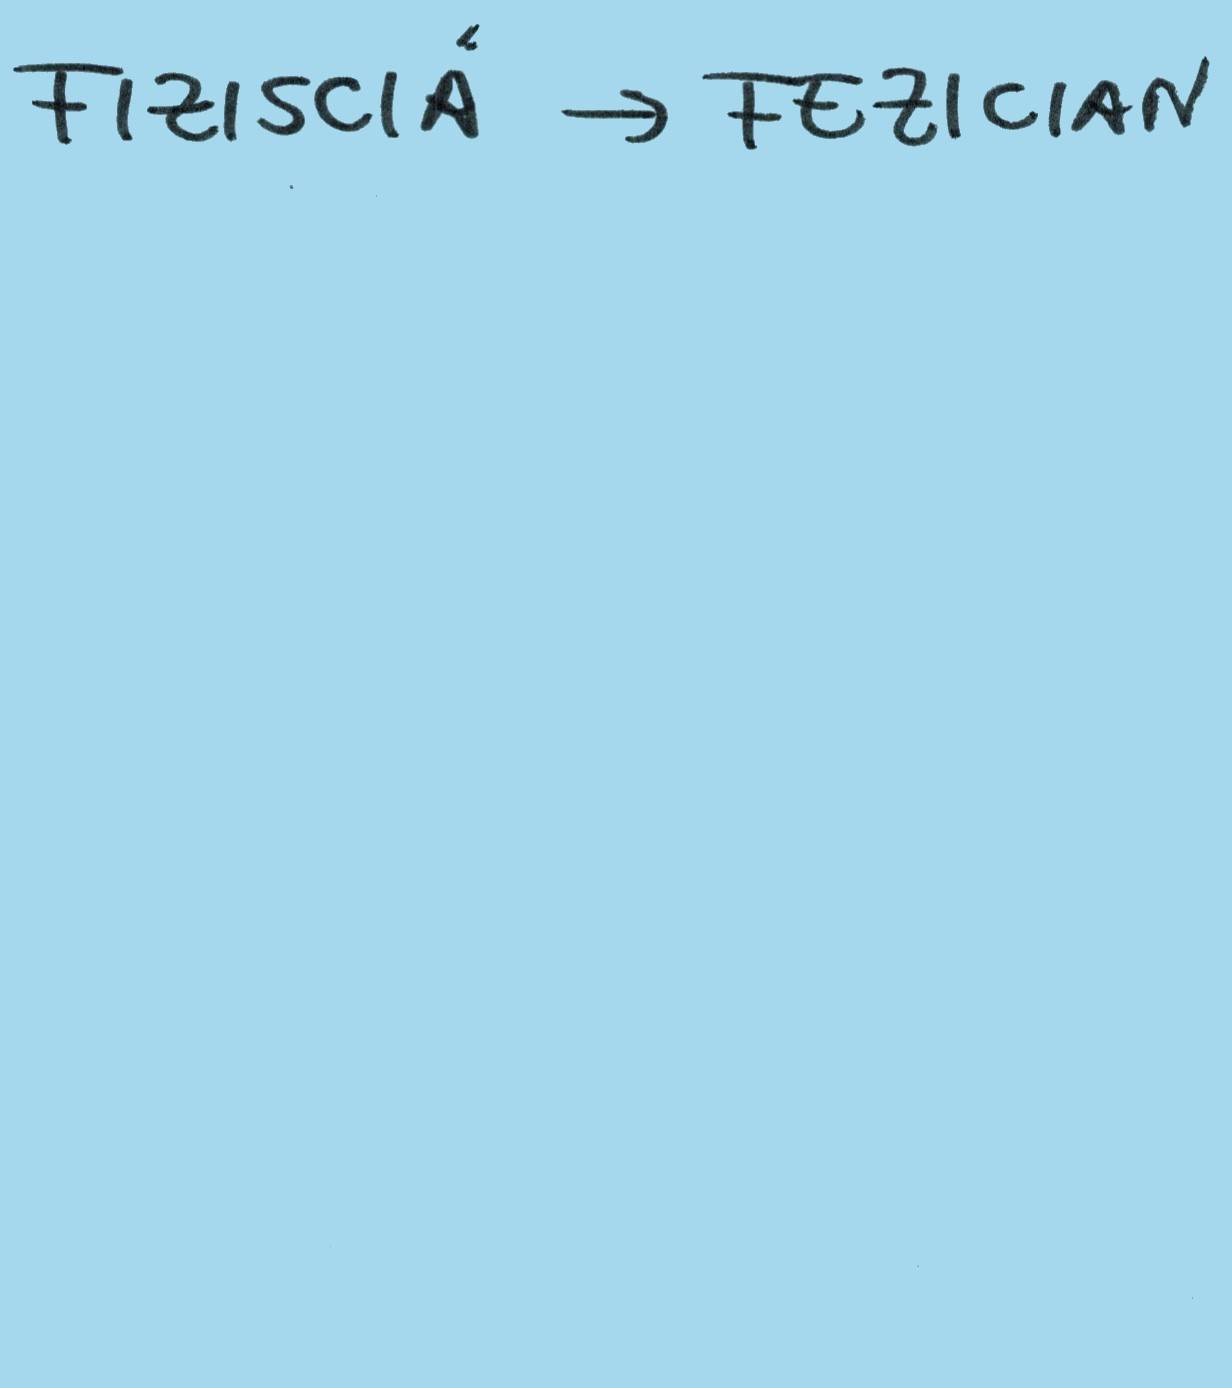 FIZISCIÁ → FEZICIAN